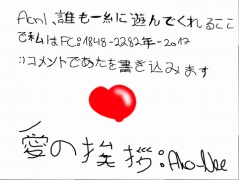 Aon1、誰も一緒に遊んでくれるここ
で私はFC:1848-2282年-2017
:)コメントであたを書き込みます
愛の挨拶:Ako-Nee